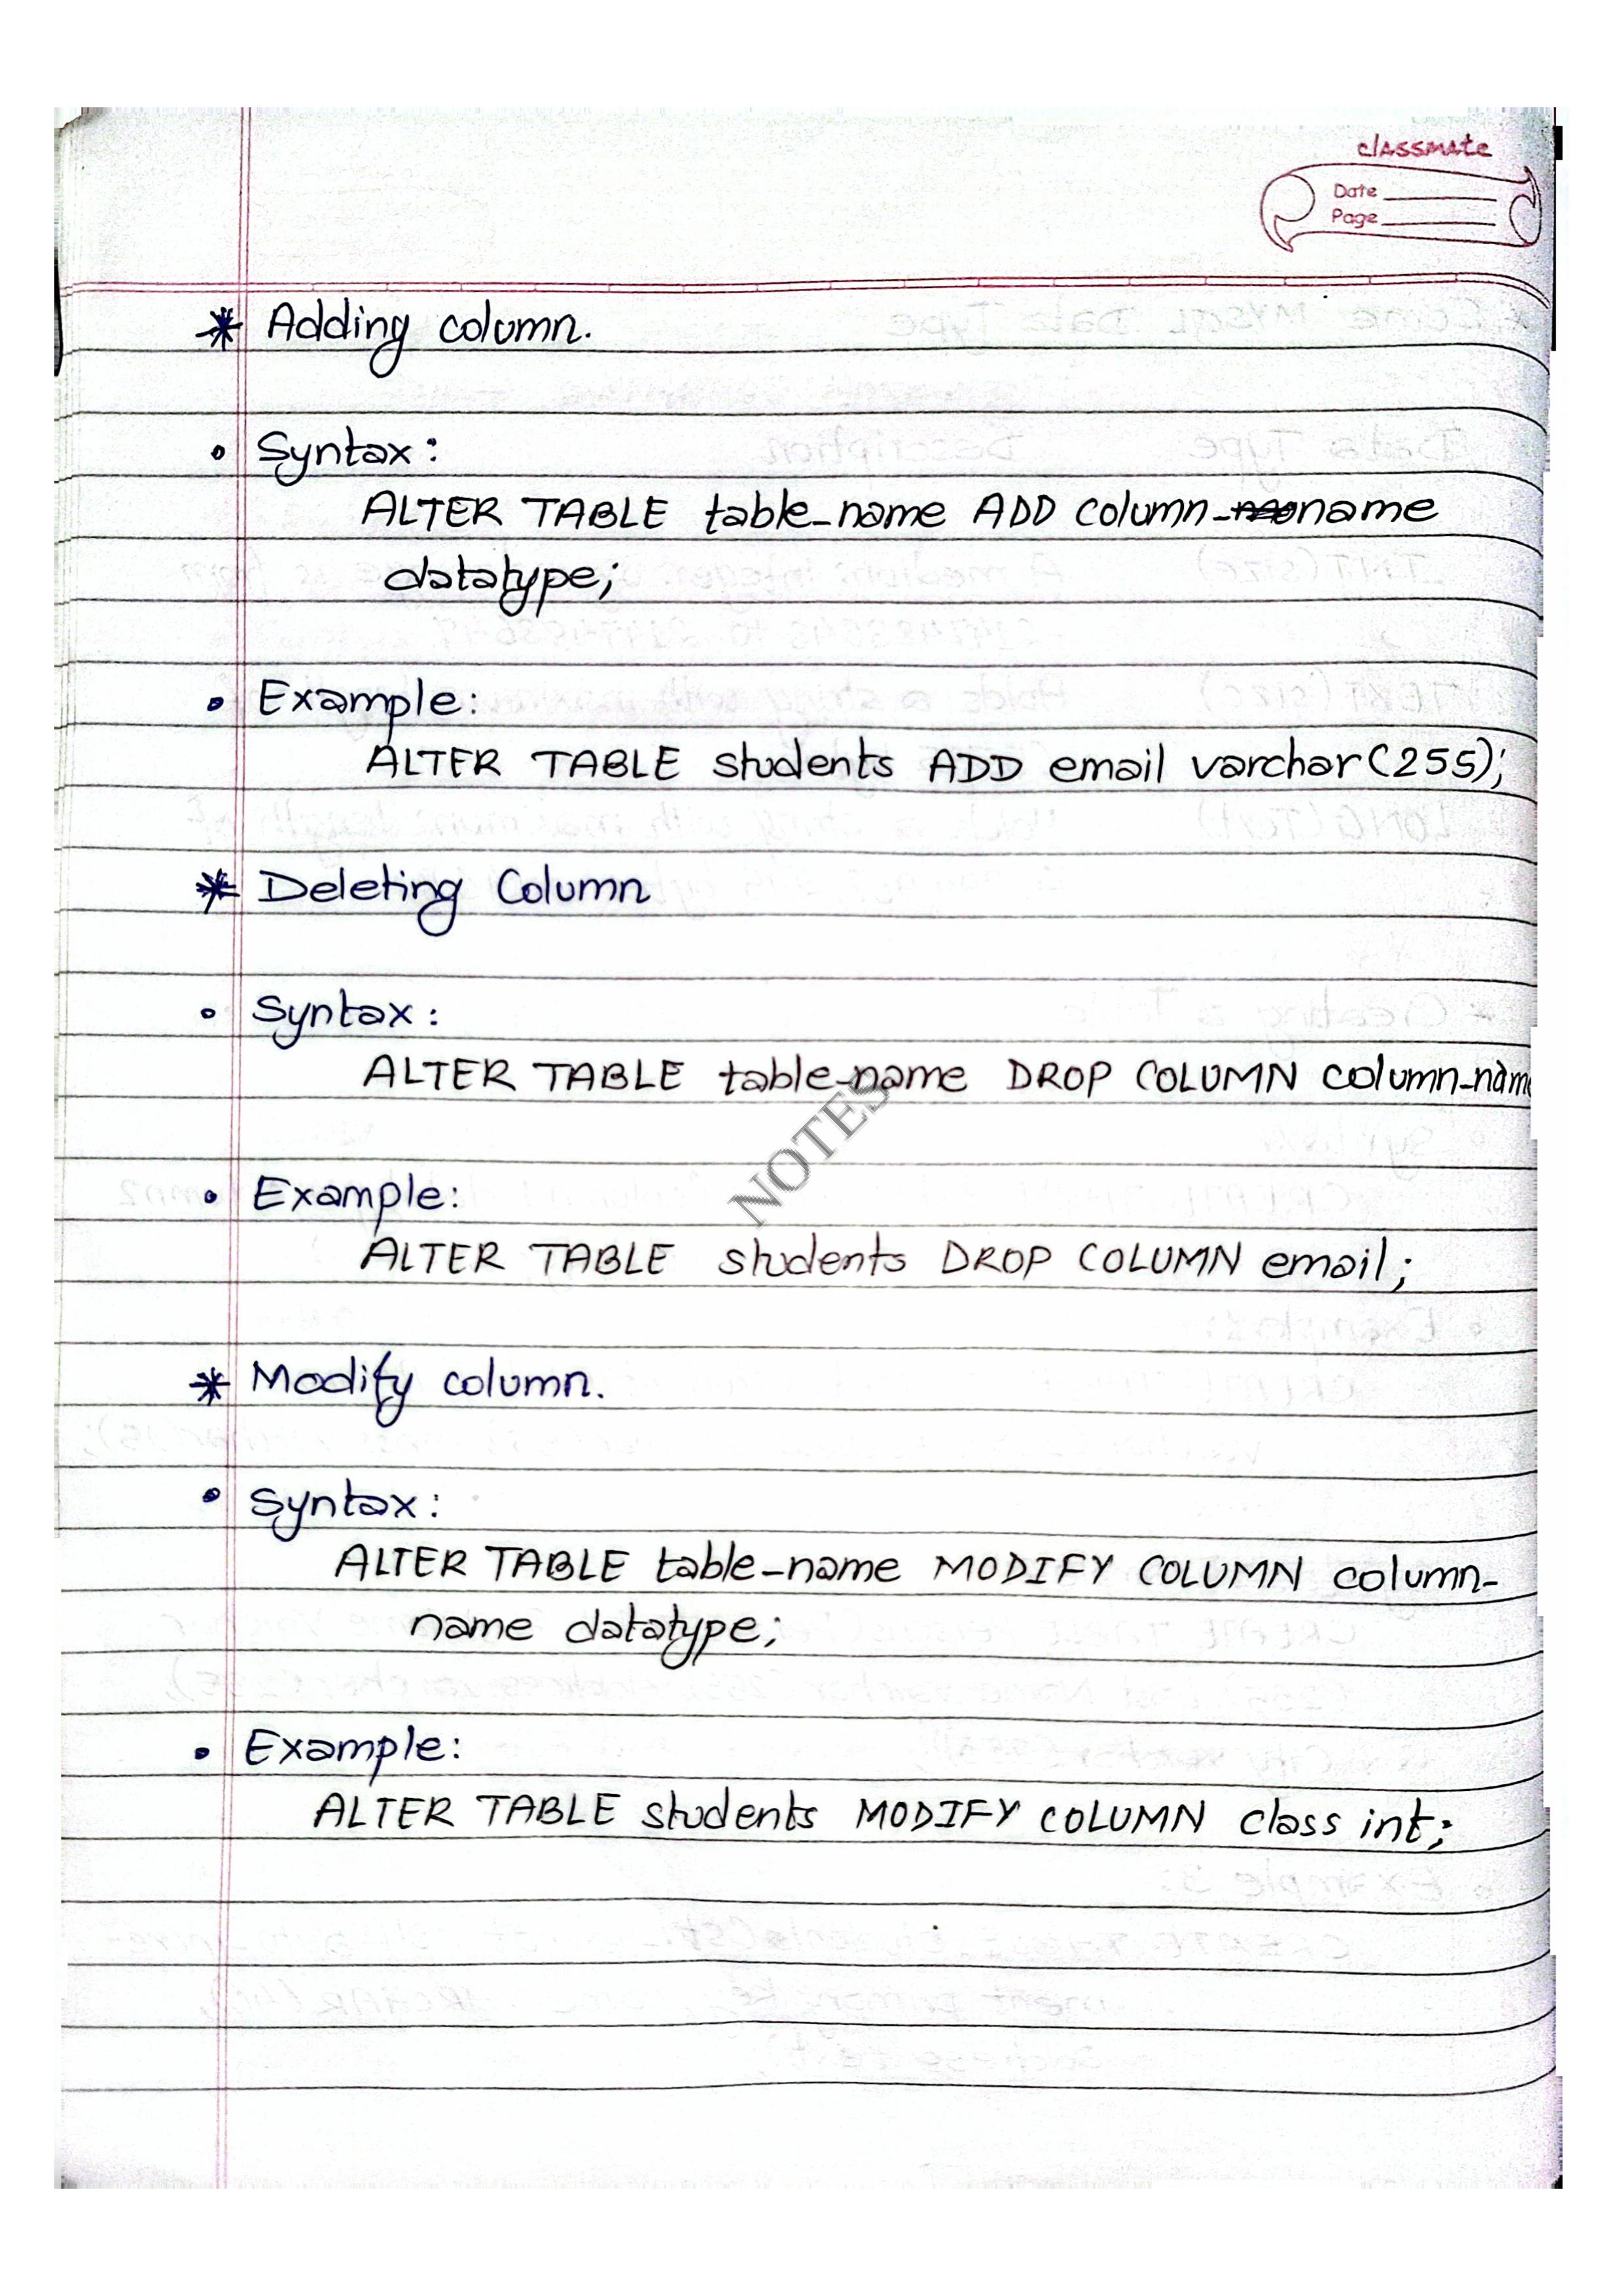 classmate
Date
Page
* Adding column.
• Syntax:
ALTER TABLE table_name ADD column_name
datatype;
• Example:
ALTER TABLE students ADD email varchar(255);
* Deleting Column
• Syntax:
ALTER TABLE table_name DROP COLUMN column_name
NOTES
• Example:
ALTER TABLE students DROP COLUMN email;
* Modify column.
• Syntax:
ALTER TABLE table_name MODIFY COLUMN column_
name datatype;
• Example:
ALTER TABLE students MODIFY COLUMN class int;